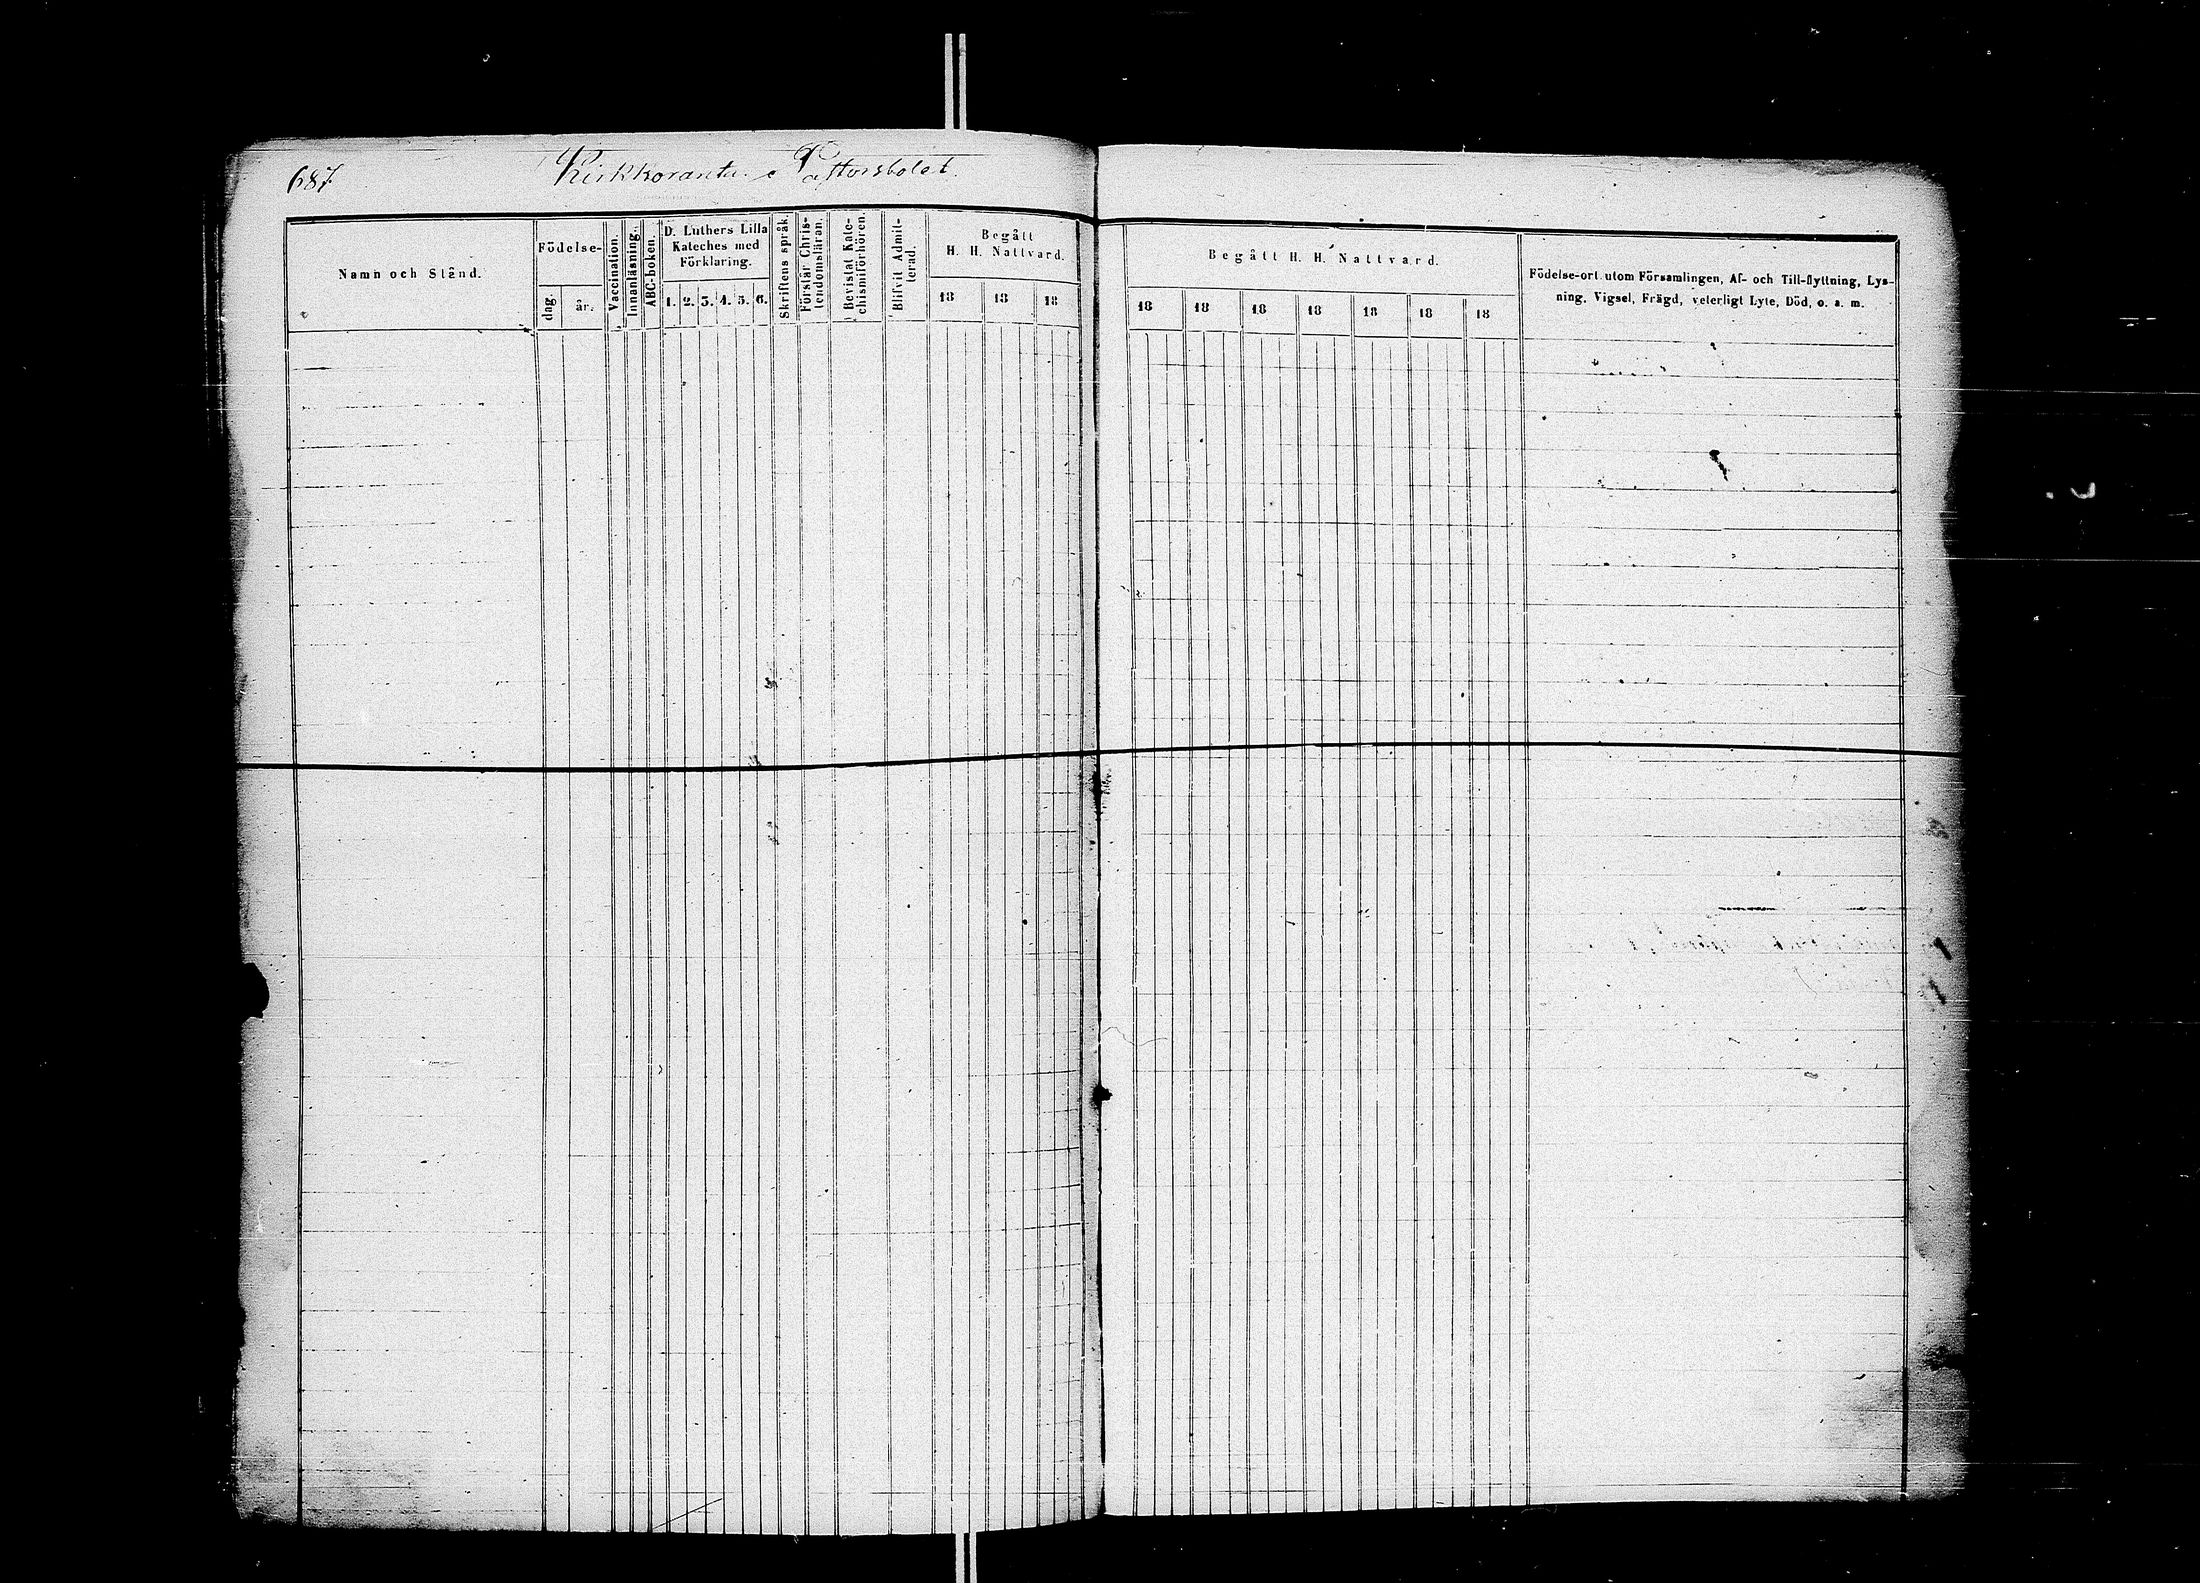 687
Kirkkoranta. Pastorsbolet.
Namn och Stånd.
Födelse-
dag.
år.
Vaccination.
Innanläsning.
ABC-boken.
D. Luthers Lilla
Kateches med
Förklaring.
1. 2. 3. 4. 5. 6.
Skriftens språk.
Förstår Chris-
tendomsläran.
Bevistat Kate-
chismiförhören.
Blifvit Admit-
terad.
Begått
H. H. Nattvard.
18 18 18
Begått H. H. Nattvard.
18 18 18 18 18 18 18
Födelse-ort utom Församlingen, Af- och Till-flyttning, Lys-
ning, Vigsel, Frägd, veterligt Lyte, Död, o. s. m.